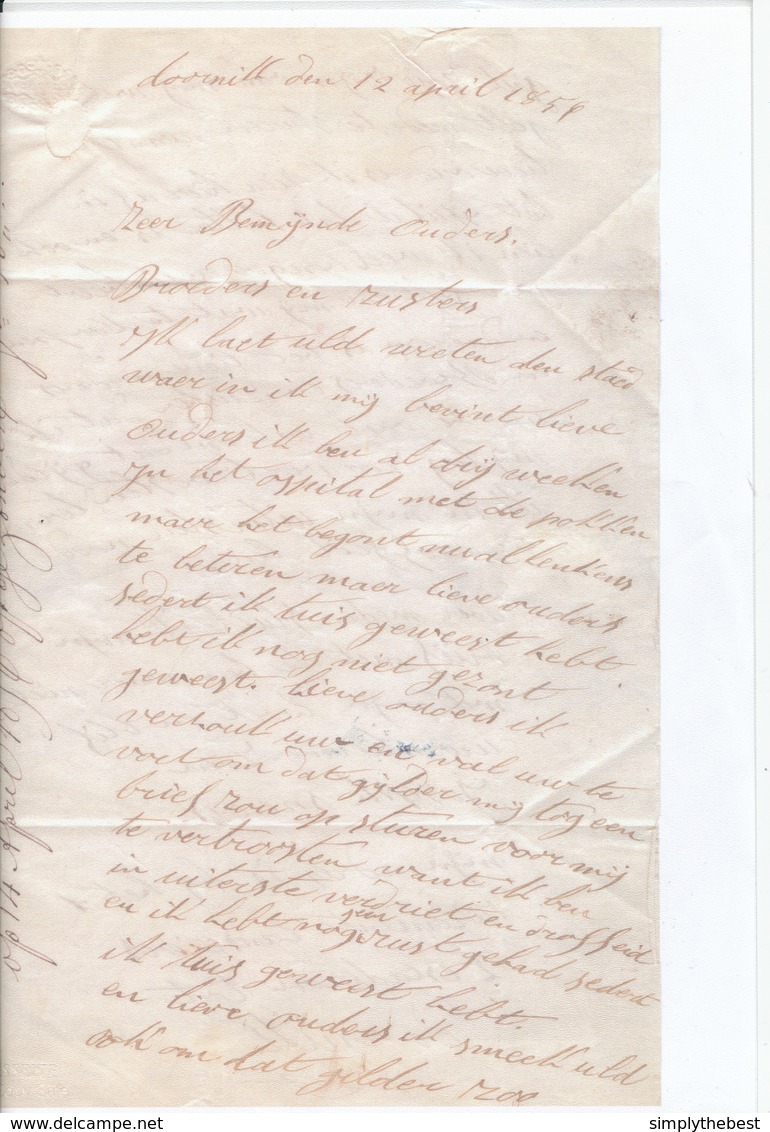 doornik den 12 april 1856
zeer Bemijnde ouders.
Broeders en zusters
ik laet uld weeten den staed
waer in ik mij bevint lieve
ouders ik ben al drij weeken
in het ospital met de pokken
maer het begont nu allenkens
te beteren maer lieve ouders
sedert ik tuis geweest hebt
hebt ik nog niet gezont
geweest. lieve ouders ik
verzouk uw en val uw te
voet om dat gijlder mij tog een
brief zou op sturen voor mij
te vertroosten want ik ben
in uiterste verdriet en drofheid
en ik hebt nog geen rust gehad sedert
ik tuis geweest hebt.
en lieve ouders ik smeek uld
ook om dat gilder zoo
op 14 April
simplythebest